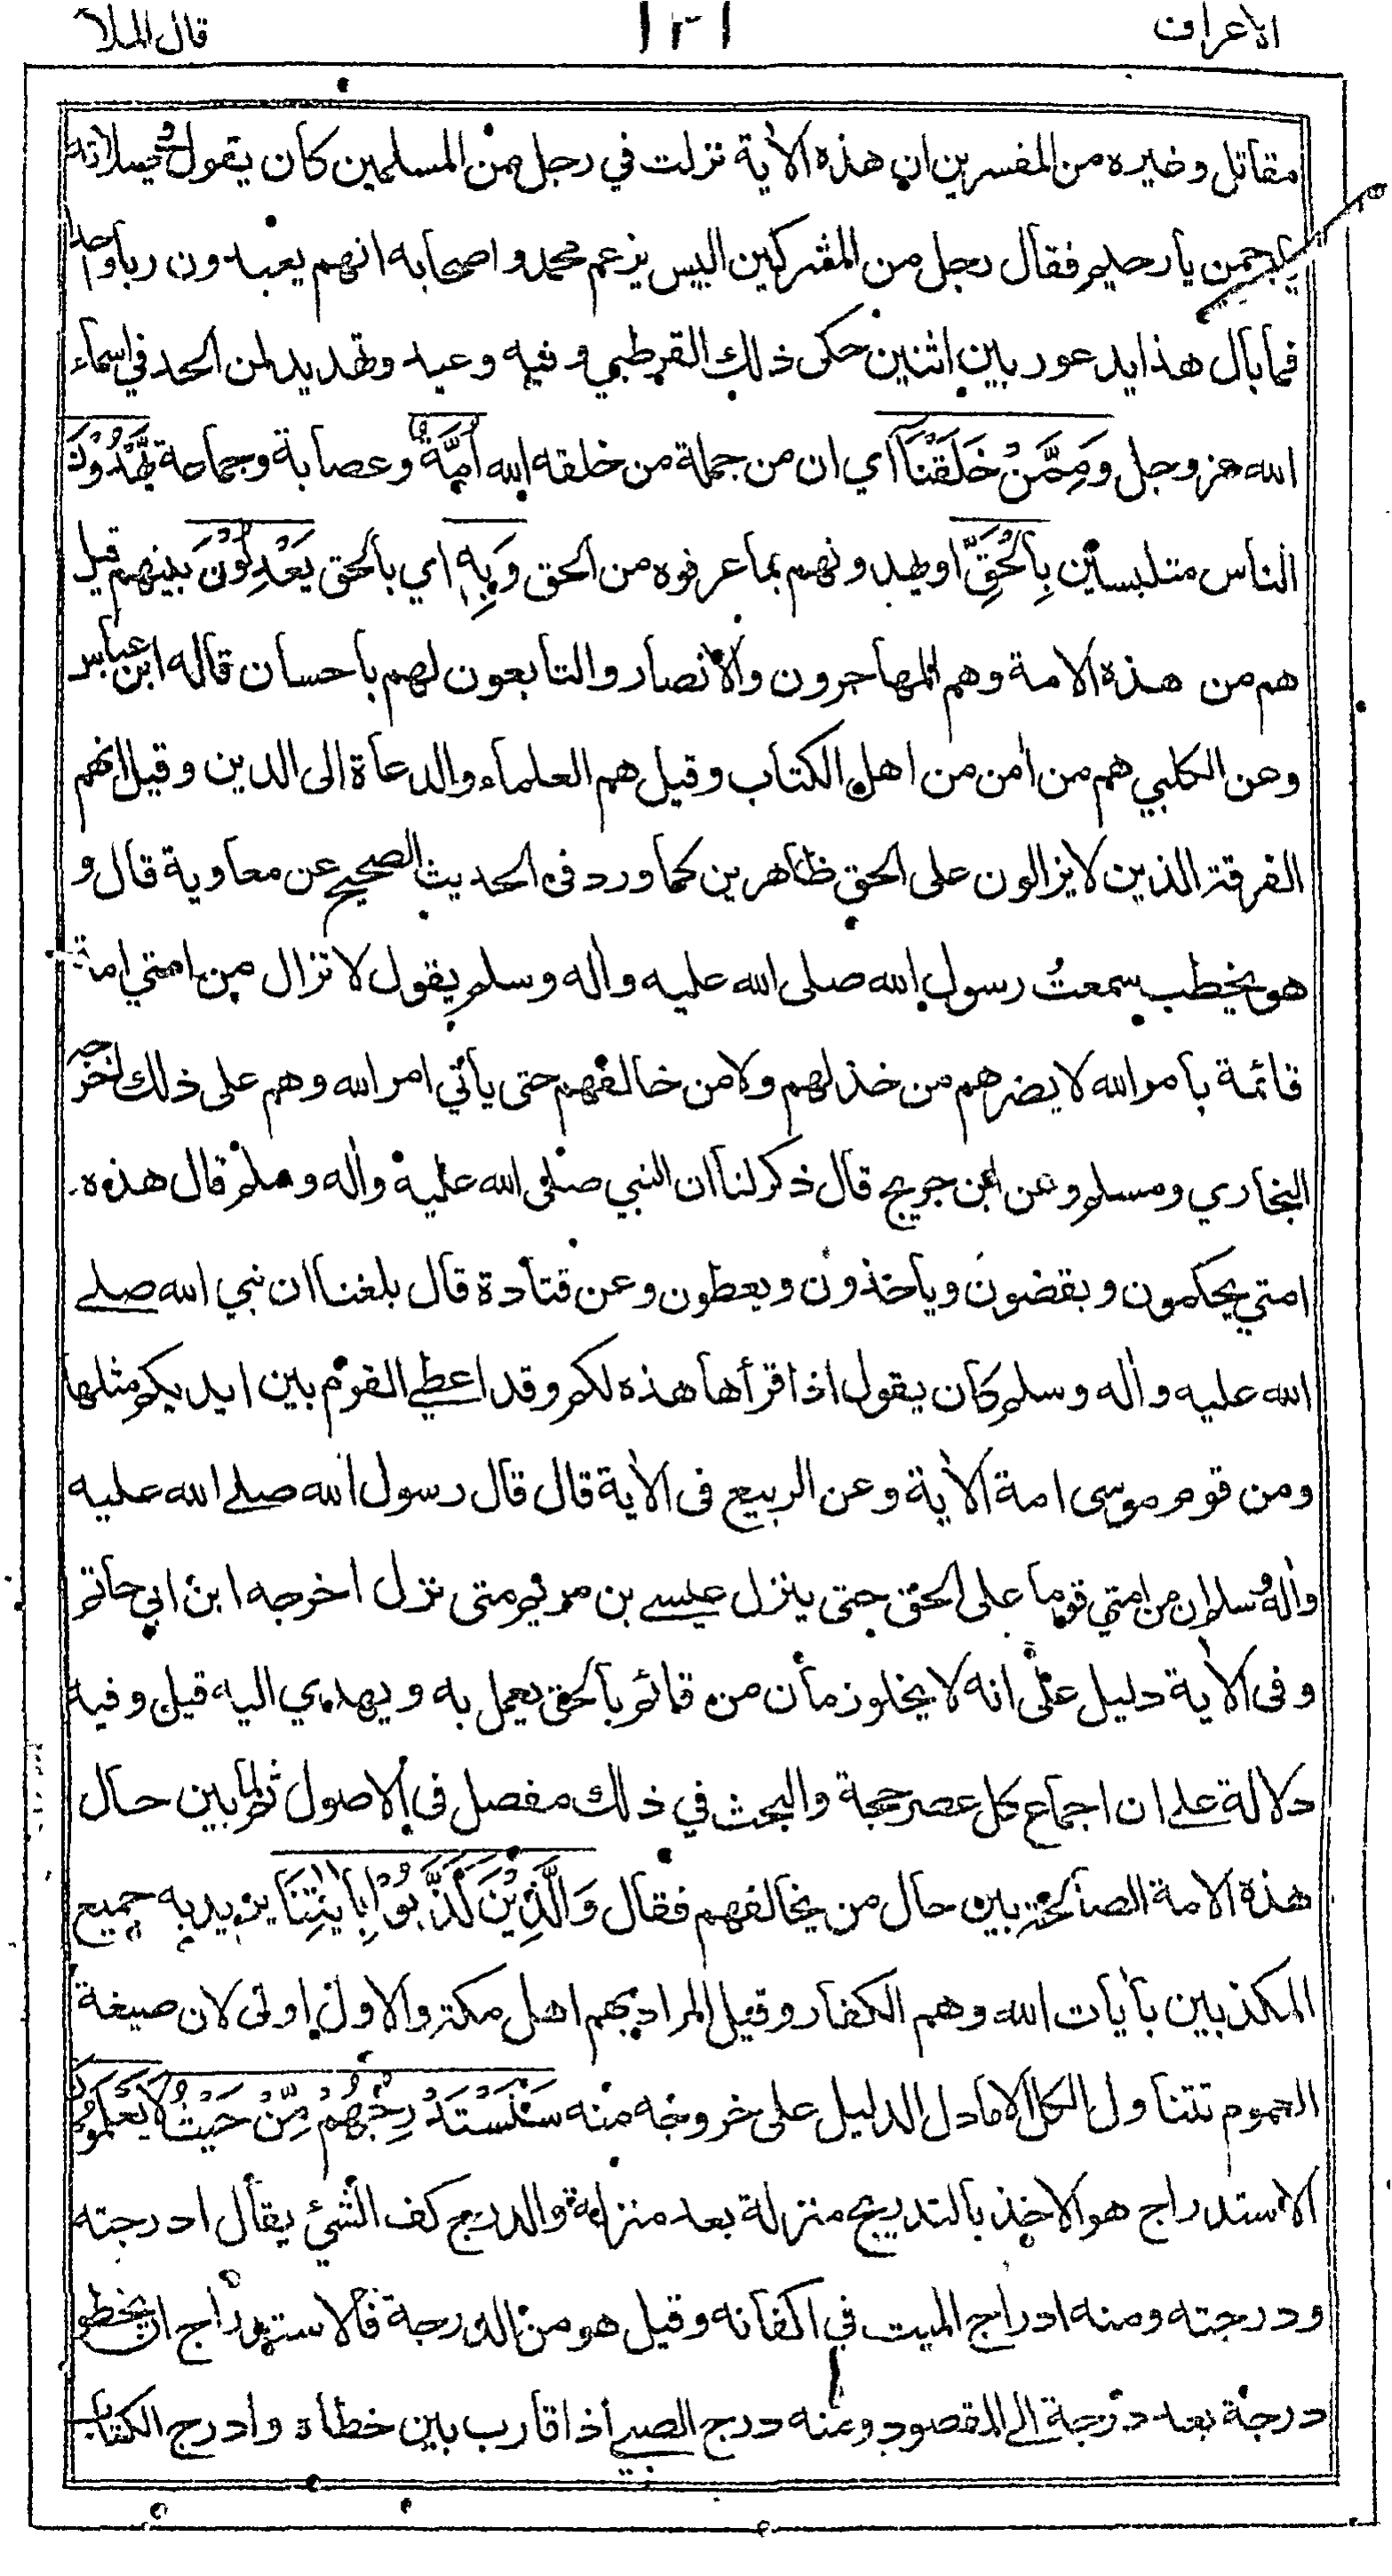 الاعراف ١٣١ قال الملأ
مقاتل وغيره من المفسرين ان هذه الأية نزلت في رجل من المسلمين كان يقول في صلاته
يارحمن يارحيم فقال رجل من المشركين اليس يزعم محمد واصحابه انهم يعبدون ربا واحدا
فما بال هذا يدعو ربين اثنين حكى ذلك القرطبي وفيه وعيد وتهديد لمن الحد في اسماء
الله عز وجل وَمِمَّنْ خَلَقْنَآ اي ان من جملة من خلقه الله أُمَّةٌ وعصابة وجماعة يَّهْدُوْنَ
الناس متلبسين بِالْحَقِّ او يهدونهم بما عرفوه من الحق وَبِهٖ اي بالحق يَعْدِلُوْنَ بينهم قيل
هم من هذه الامة وهم المهاجرون والانصار والتابعون لهم باحسان قاله ابن عباس
وعن الكلبي هم من أمن من اهل الكتاب وقيل هم العلماء والدعاة الى الدين وقيل انهم
الفرقة الذين لا يزالون على الحق ظاهرين كما ورد في الحديث الصحيح عن معاوية قال و
هو يخطب سمعتُ رسول الله صلى الله عليه وأله وسلم يقول لا تزال من امتي امة
قائمة بامر الله لا يضرهم من خذلهم ولا من خالفهم حتى يأتي امر الله وهم على ذلك اخرجه
البخاري ومسلم وعن ابن جريج قال ذكر لنا ان النبي صلى الله عليه وأله وسلم قال هذه
امتي يحكمون ويقضون ويأخذون ويعطون وعن قتادة قال بلغنا ان نبي الله صلے
الله عليه وأله وسلم كان يقول اذا قرأها هذه لكم وقد اعطي القوم بين ايديكم مثلها
ومن قوم موسى امة الأية وعن الربيع في الأية قال قال رسول الله صلے الله عليه
وأله وسلم ان من امتي قوما على الحق حتى ينزل عيسے بن مريم متى نزل اخرجه ابن ابي حاتم
وفي الأية دليل على انه لا يخلو زمان من قائم بالحق يعمل به ويهدي اليه قيل وفيه
دلالة علے ان اجماع كل عصر حجة والبحث في ذلك مفصل في الاصول ثم لما بين حال
هذه الامة الصالحة بين حال من يخالفهم فقال وَالَّذِيْنَ كَذَّبُوْا بِاٰيٰتِنَا يريد به جميع
المكذبين بأيات الله وهم الكفار وقيل المراد بهم اهل مكة والاول اولى لان صيغة
العموم تتناول الكل الا ما دل الدليل على خروجه منه سَنَسْتَدْرِجُهُمْ مِّنْ حَيْثُ لَا يَعْلَمُوْنَ
الاستدراج هو الاخذ بالتدريج منزلة بعد منزلة والدرج كف الشئ يقال ادرجته
ودرجته ومنه ادراج الميت في اكفانه وقيل هو من الدرجة فالاستدراج ان يخطو
درجة بعد درجة الى المقصود ومنه درج الصبے اذا قارب بين خطاه وادرج الكتاب